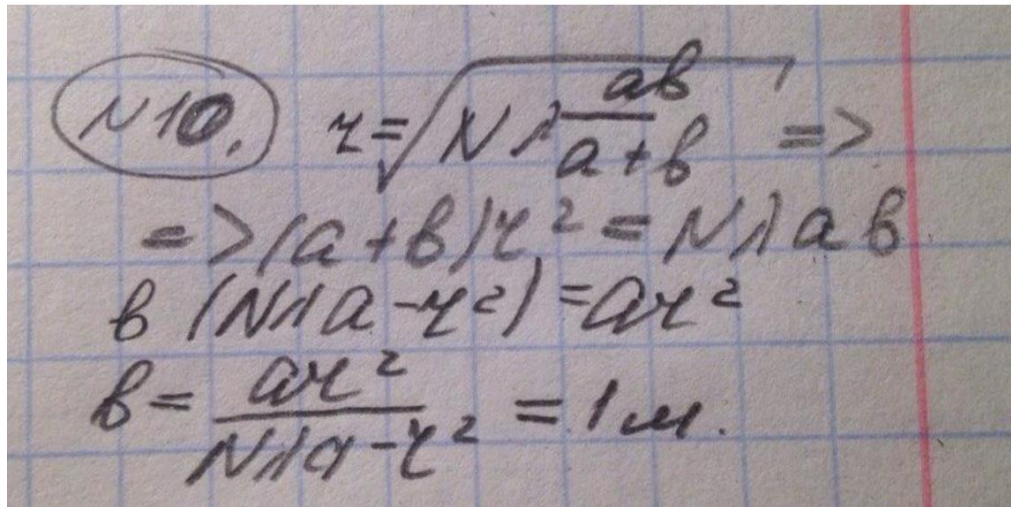 N10. r=√(Nλ ab/(a+b)) =>
=> (a+b)r² = Nλab
b (Nλa-r²) = ar²
b = ar²/(Nλa-r²) = 1 м.